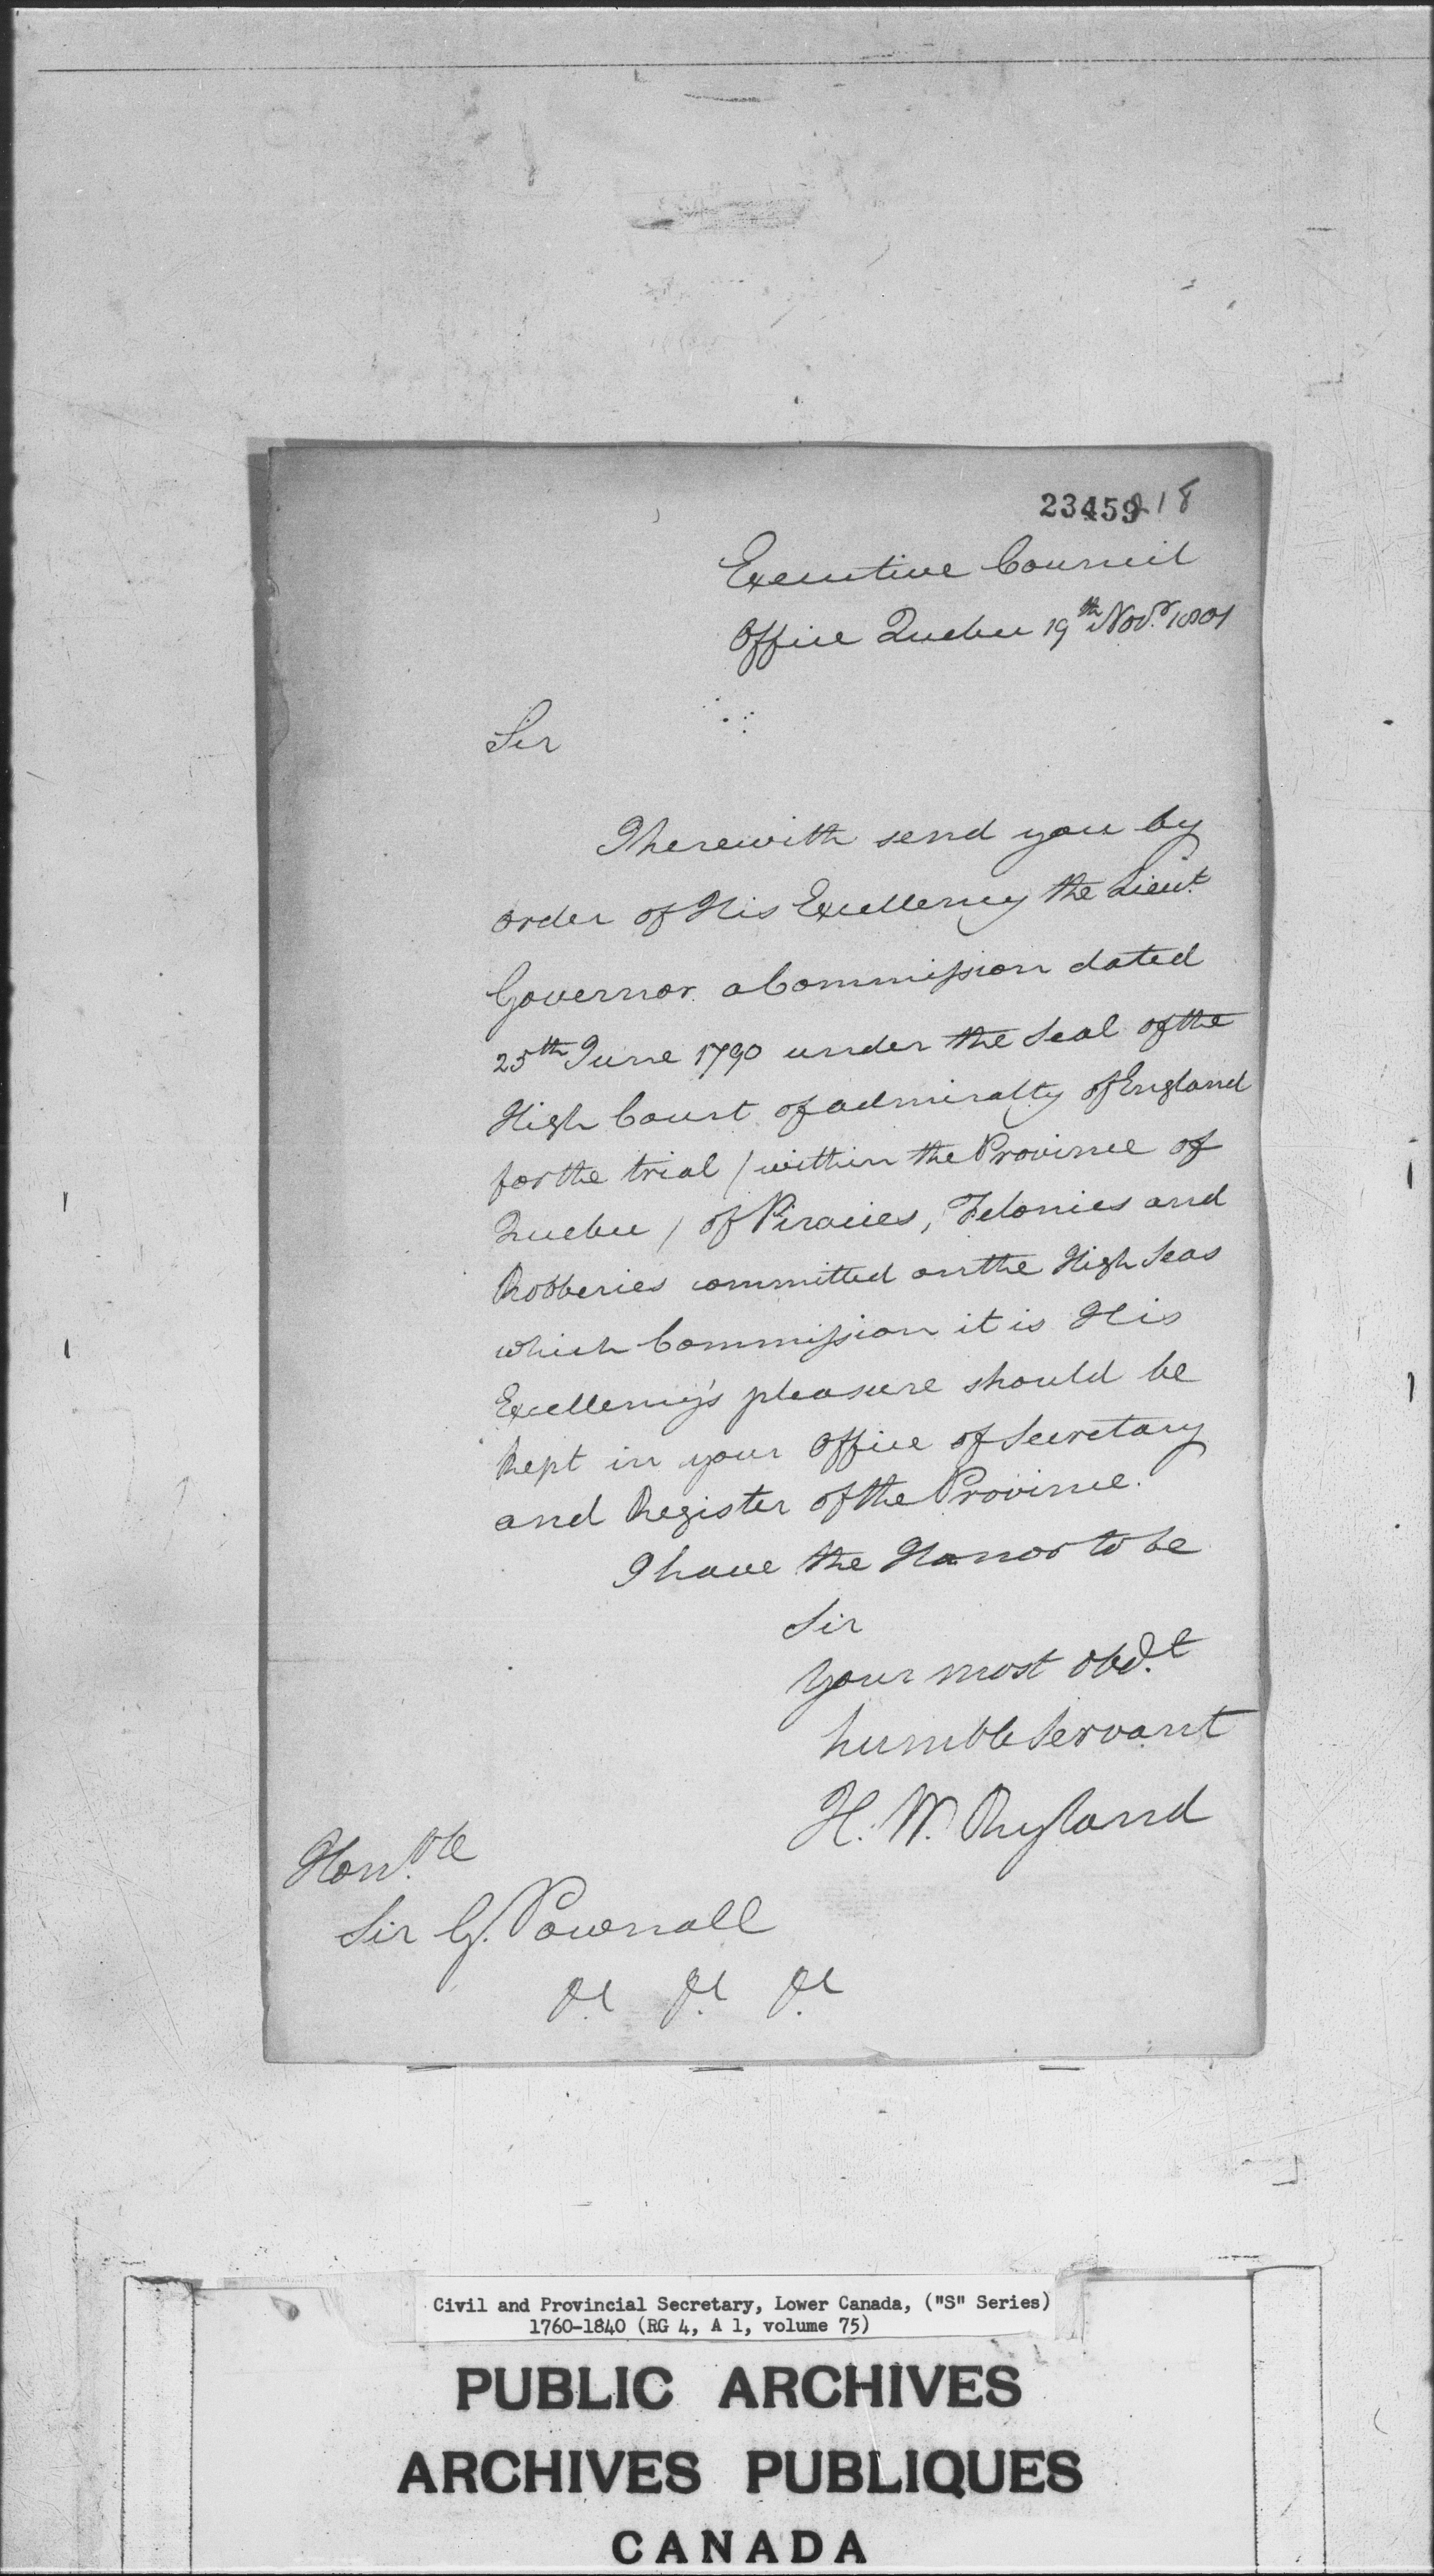 23459 218
Executive Council
Office Quebec 19th Novr. 1801
Sir
I herewith send you by
order of His Excellency the Lieut.
Governor a Commission dated
25th June 1790 under the Seal of the
High Court of admiralty of England
for the trial / within the Province of
Quebec / of Piracies, Felonies and
Robberies committed on the High Seas
which Commission it is His
Excellency's pleasure should be
kept in your Office of Secretary
and Register of the Province.
I have the Honor to be
Sir
Your most obdt.
humble Servant
H. W. Ryland
Honble.
Sir G. Pownall
&c &c &c
Civil and Provincial Secretary, Lower Canada, ("S" Series)
1760-1840 (RG 4, A 1, volume 75)
PUBLIC ARCHIVES
ARCHIVES PUBLIQUES
CANADA